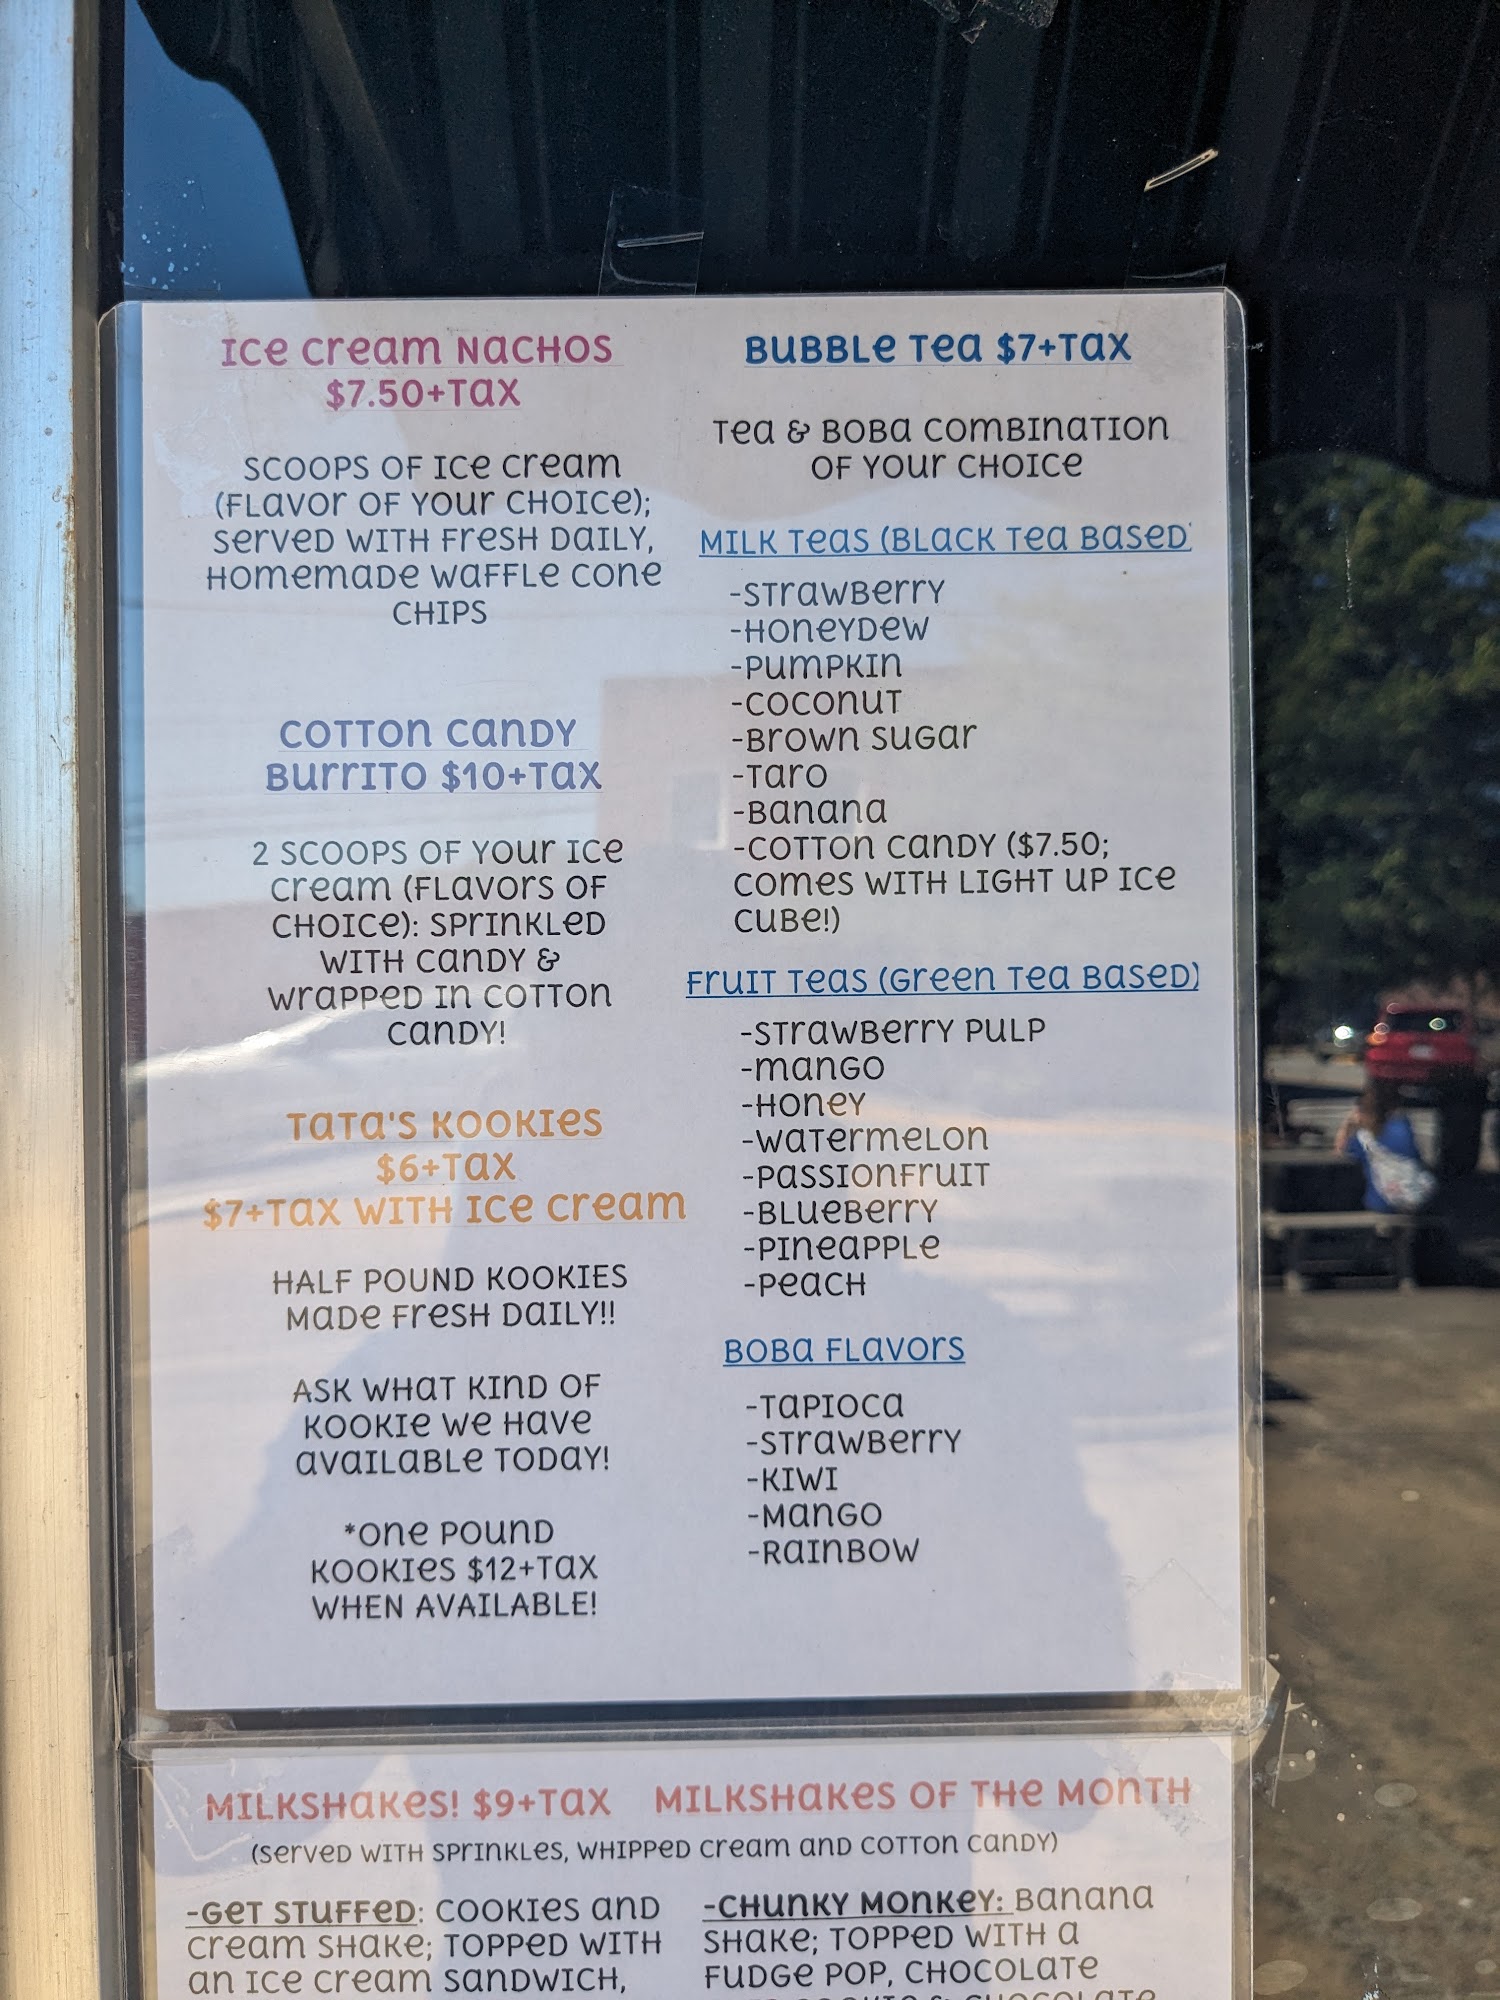 ICE CREAM NACHOS
$7.50+TAX
SCOOPS OF ICE CREAM
(FLAVOR OF YOUR CHOICE);
SERVED WITH FRESH DAILY,
HOMEMADE WAFFLE CONE
CHIPS
COTTON CANDY
BURRITO $10+TAX
2 SCOOPS OF YOUR ICE
CREAM (FLAVORS OF
CHOICE): SPRINKLED
WITH CANDY &
WRAPPED IN COTTON
CANDY!
TATA'S KOOKIES
$6+TAX
$7+TAX WITH ICE CREAM
HALF POUND KOOKIES
MADE FRESH DAILY!!
ASK WHAT KIND OF
KOOKIE WE HAVE
AVAILABLE TODAY!
*ONE POUND
KOOKIES $12+TAX
WHEN AVAILABLE!
BUBBLE TEA $7+TAX
TEA & BOBA COMBINATION
OF YOUR CHOICE
MILK TEAS (BLACK TEA BASED)
-STRAWBERRY
-HONEYDEW
-PUMPKIN
-COCONUT
-BROWN SUGAR
-TARO
-BANANA
-COTTON CANDY ($7.50;
COMES WITH LIGHT UP ICE
CUBE!)
FRUIT TEAS (GREEN TEA BASED)
-STRAWBERRY PULP
-MANGO
-HONEY
-WATERMELON
-PASSIONFRUIT
-BLUEBERRY
-PINEAPPLE
-PEACH
BOBA FLAVORS
-TAPIOCA
-STRAWBERRY
-KIWI
-MANGO
-RAINBOW
MILKSHAKES! $9+TAX MILKSHAKES OF THE MONTH
(SERVED WITH SPRINKLES, WHIPPED CREAM AND COTTON CANDY)
-GET STUFFED: COOKIES AND
CREAM SHAKE; TOPPED WITH
AN ICE CREAM SANDWICH,
-CHUNKY MONKEY: BANANA
SHAKE; TOPPED WITH A
FUDGE POP, CHOCOLATE